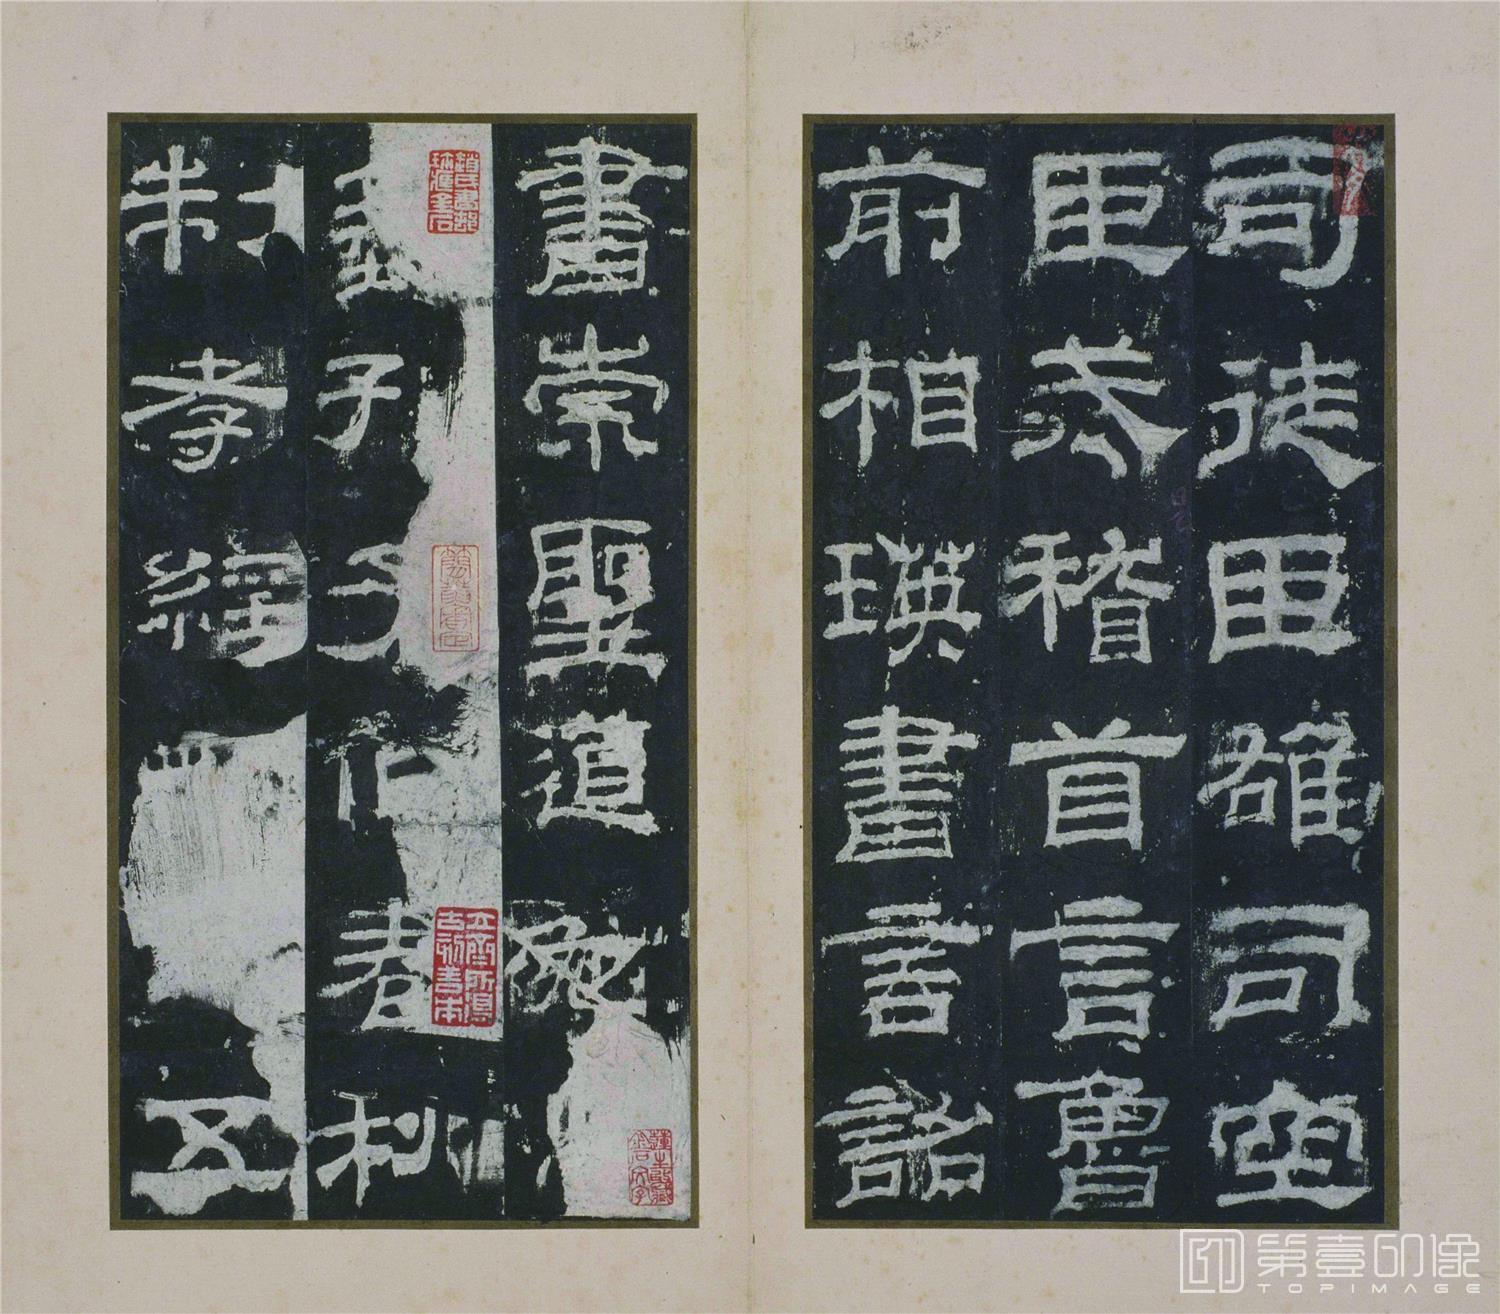 司徒臣雄司空
臣戒稽首言魯
前相瑛書言詔
書崇聖道勉
藝孔子作春秋
制孝經五
第壹印像
TOPIMAGE